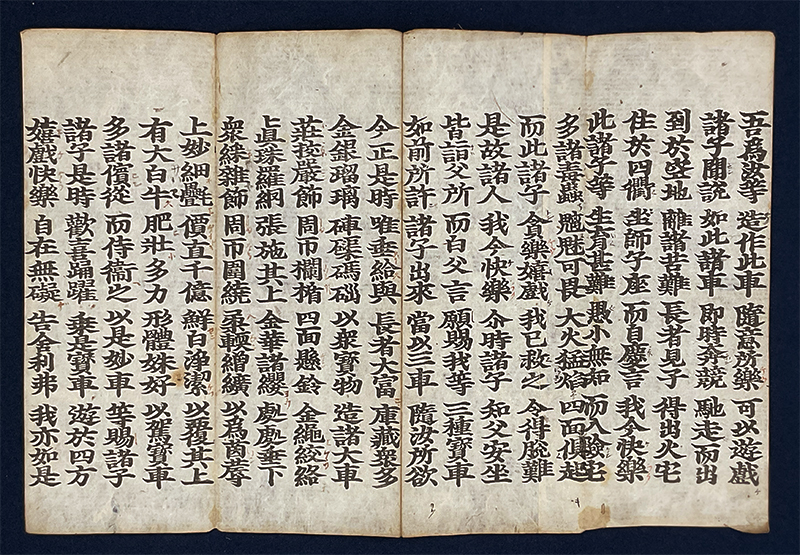 吾爲汝等 造作此車 隨意所樂 可以遊戲
諸子聞說 如此諸車 即時奔競 馳走而出
到於空地 離諸苦難 長者見子 得出火宅
住於四衢 坐師子座 而自慶言 我今快樂
此諸子等 生育甚難 愚小無知 而入險宅
多諸毒蟲 魑魅可畏 大火猛焰 四面俱起
而此諸子 貪樂嬉戲 我已救之 令得脫難
是故諸人 我今快樂 尒時諸子 知父安坐
皆詣父所 而白父言 願賜我等 三種寶車
如前所許 諸子出來 當以三車 隨汝所欲
今正是時 唯垂給與 長者大富 庫藏眾多
金銀瑠璃 硨磲碼碯 以眾寶物 造諸大車
莊挍嚴飾 周帀欄楯 四面懸鈴 金繩絞絡
眞珠羅網 張施其上 金華諸纓 處處垂下
眾綵雜飾 周帀圍繞 柔軟繒纊 以爲茵蓐
上妙細㲲 價直千億 鮮白淨潔 以覆其上
有大白牛 肥壯多力 形體姝好 以駕寶車
多諸儐從 而侍衛之 以是妙車 等賜諸子
諸子是時 歡喜踊躍 乘是寶車 遊於四方
嬉戲快樂 自在無礙 告舍利弗 我亦如是